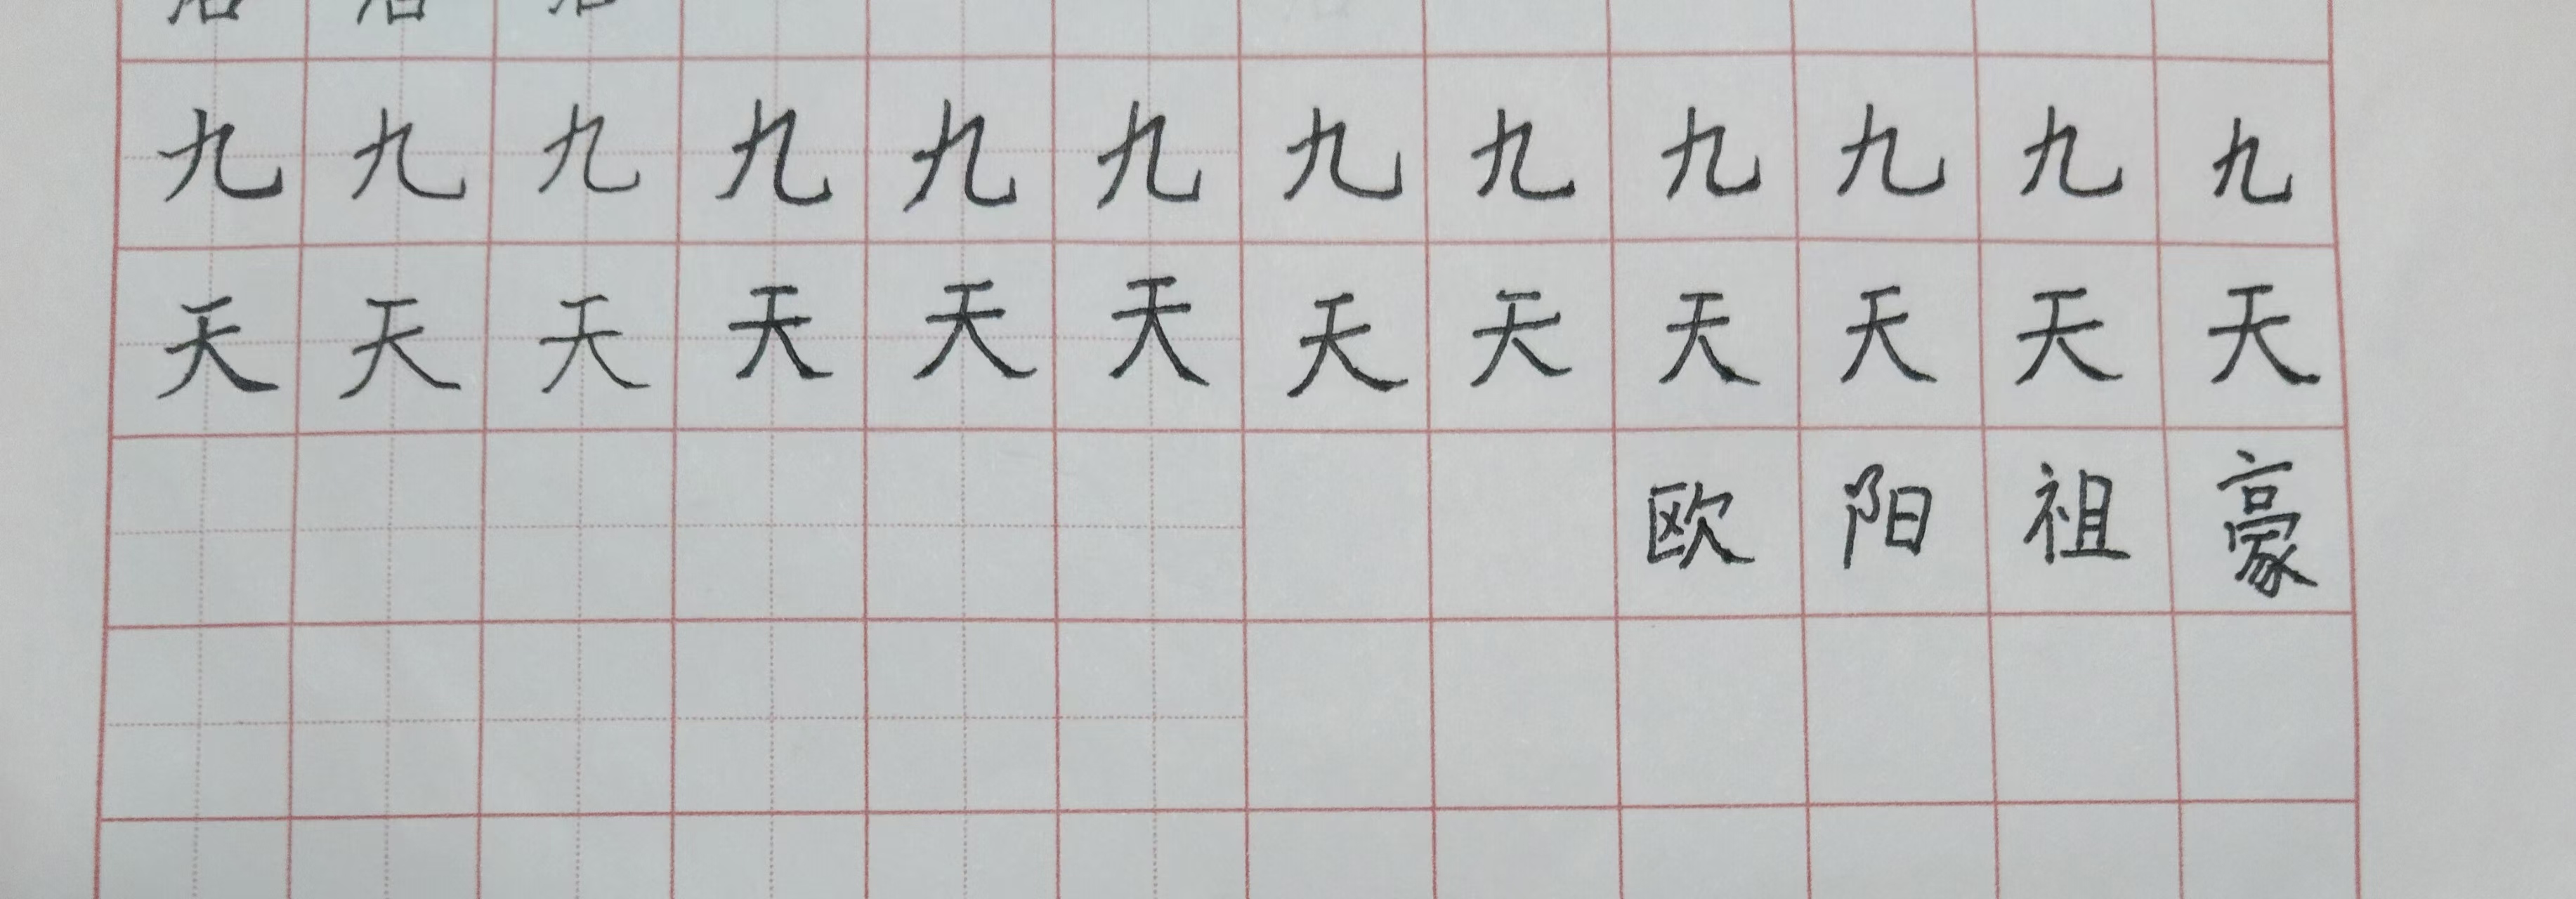 九九九九九九九九九九九九
天天天天天天天天天天天天
欧阳祖豪